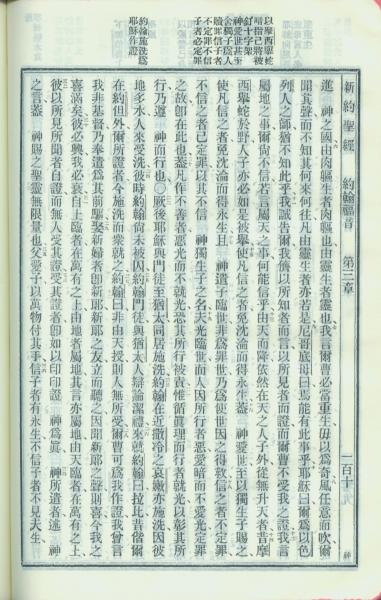 新約聖經 約翰福音 第三章 一百十九 神
以摩西舉蛇
喻指己將被
釘十字架
神愛世甚至
令獨子爲人
贖罪信子者
不定罪不信
子者必定罪
約翰施洗爲
耶穌作證
進 神之國由肉軀生者肉軀也由靈生者靈也我言爾曹必當重生毋以爲奇風任意而吹爾
聞其聲而不知其何來何往凡由靈生者亦若是尼哥底母曰焉能有此事乎耶穌曰爾爲以色
列人之師猶不知此乎我誠告爾我儕以所知者而言以所見者而證而爾曹不受我之證我言
屬地之事爾尚不信若言屬天之事何能信乎由天而降依然在天之人子外從無升天者昔摩
西舉蛇於野人子亦必如是被舉使凡信之者免沈淪而得永生蓋 神愛世至以獨生子賜之
使凡信之者免沈淪而得永生且 神遣子臨世非爲罪世乃爲使世因之得救信之者不定罪
不信之者已定罪以其不信 神獨生子之名夫光臨世而人因所行者惡愛暗而不愛光定罪
之故卽在此也蓋凡作不善者惡光而不就光恐其所行被責惟循眞理而行者就光以彰其所
行乃遵 神而行也〇厥後耶穌與門徒至猶太同居施洗約翰在近撒冷之哀嫩亦施洗因彼
地多水人來受洗彼時約翰尚未被囚約翰門徒與猶太人辯論潔禮來就約翰曰拉比昔偕爾
在約但外爾所證者今施洗而衆就之約翰曰非由天授則人無所受爾曹可爲我作證我曾言
我非基督乃奉遣爲其前驅娶新婦者卽新郎新郎之友立而聽之因聞新郎之聲則喜今我之
喜滿矣彼必興我必衰自上臨者在萬有之上由地者屬地其言亦屬地由天臨者在萬有之上
彼以所見所聞者自證而無人受其證受其證者卽如以印印證 神爲眞 神所遣者述 神
之言蓋 神賜之聖靈無限量也父愛子以萬物付其手信子者有永生不信子者不見永生